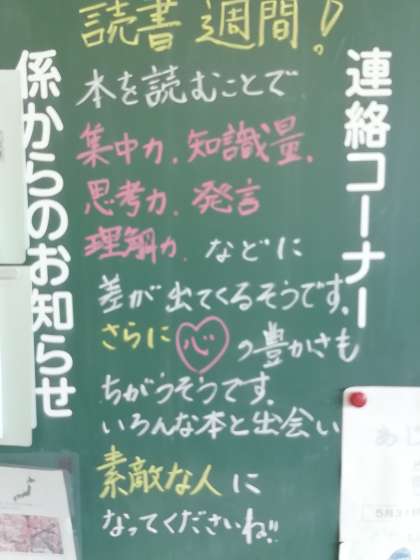 読書週間!
連絡コーナー
本を読むことで
集中力、知識量、
思考力、発言
理解力、などに
差が出てくるそうです。
さらに心の豊かさも
ちがうそうです。
いろんな本と出会い
素敵な人に
なってくださいね!!
係からのお知らせ
5月31日